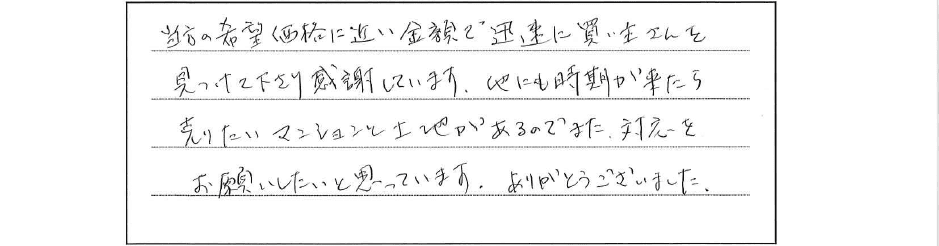 当方の希望価格に近い金額で迅速に買い主さんを
見つけて下さり感謝しています。他にも時期が来たら
売りたいマンションと土地があるのでまた、対応を
お願いしたいと思っています。ありがとうございました。